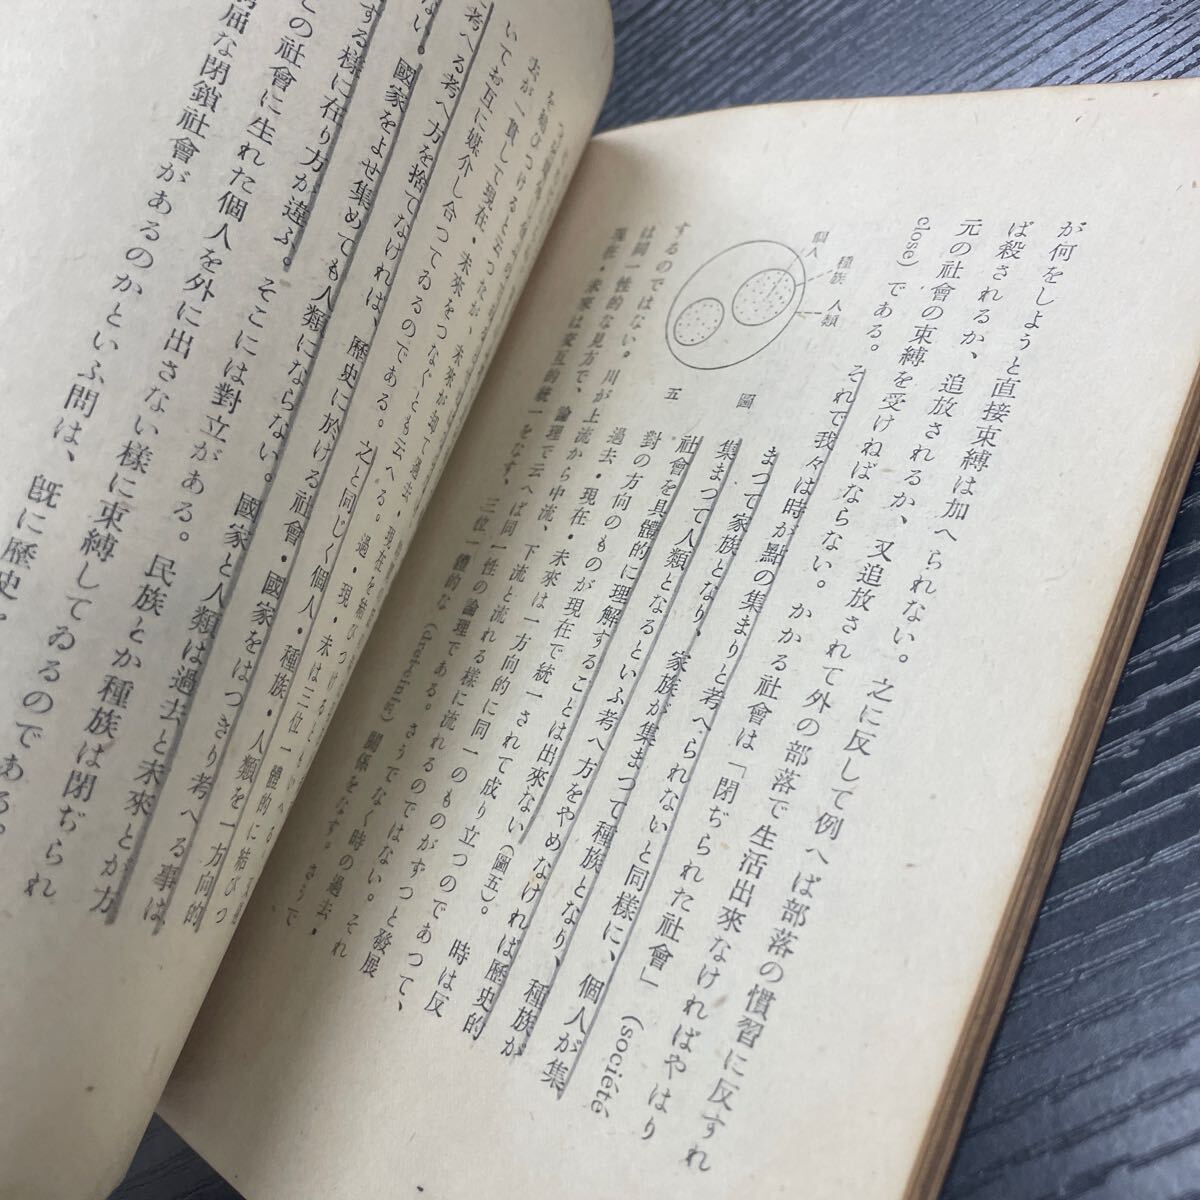 が何をしようと直接束縛は加へられない。之に反して例へば部落の慣習に反すれ
ば殺されるか、追放されるか、又追放されて外の部落で生活出來なければやはり
元の社會の束縛を受けねばならない。かかる社會は「閉ぢられた社會」(société
close)である。それで我々は時が點の集まりと考へられないと同樣に、個人が集
まつて家族となり、家族が集まつて種族となり、種族が
集まつて人類となるといふ考へ方をやめなければ歷史的
社會を具體的に理解することは出來ない(圖五)。時は反
對の方向のものが現在で統一されて成り立つのであつて、
過去・現在・未來は一方向的に同一のものがずつと發展
するのではない。川が上流から中流、下流と流れる樣に流れるのではない。それ
は同一性的な見方で、論理で云へば同一性の論理である。さうでなく時の過去・
現在・未來は交互的統一をなす、三位一體的な
個人
種族
人類
圖五
いてお互に媒介し合つてゐるのである。之と同じく個人・種族・人類を一方向的
に考へる考へ方を捨てなければ、歷史に於ける社會・國家をはつきり考へる事は
ない。國家をよせ集めても人類にならない。國家と人類は過去と未來とが方
する樣に在り方が違ふ。そこには對立がある。民族とか種族は閉ぢられ
この社會に生れた個人を外に出さない樣に束縛してゐるのである。
屈な閉鎖社會があるのかといふ問は、既に歷史